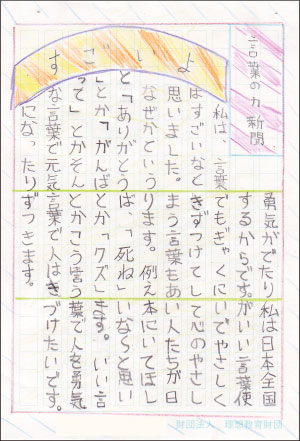 言葉の力新聞
すごいよ
私は、言葉
はすごいなと
思いました。
なぜかという
と「ありがとう
」とか「がんば
って」とかそん
な言葉で元気
になったり
勇気がでたり
するからです。
でもぎゃくに
きずつけてし
まう言葉もあ
ります。例え
は、「死ね」
とか「クズ」
とかこう言う
言葉で人はき
ずつきます。
私は日本全国
がいい言葉使
いでやさしく
て心のやさし
い人たちが日
本にいてほし
いなと思い
ます。いい言
葉で人を勇気
づけたいです。
財団法人 理想教育財団